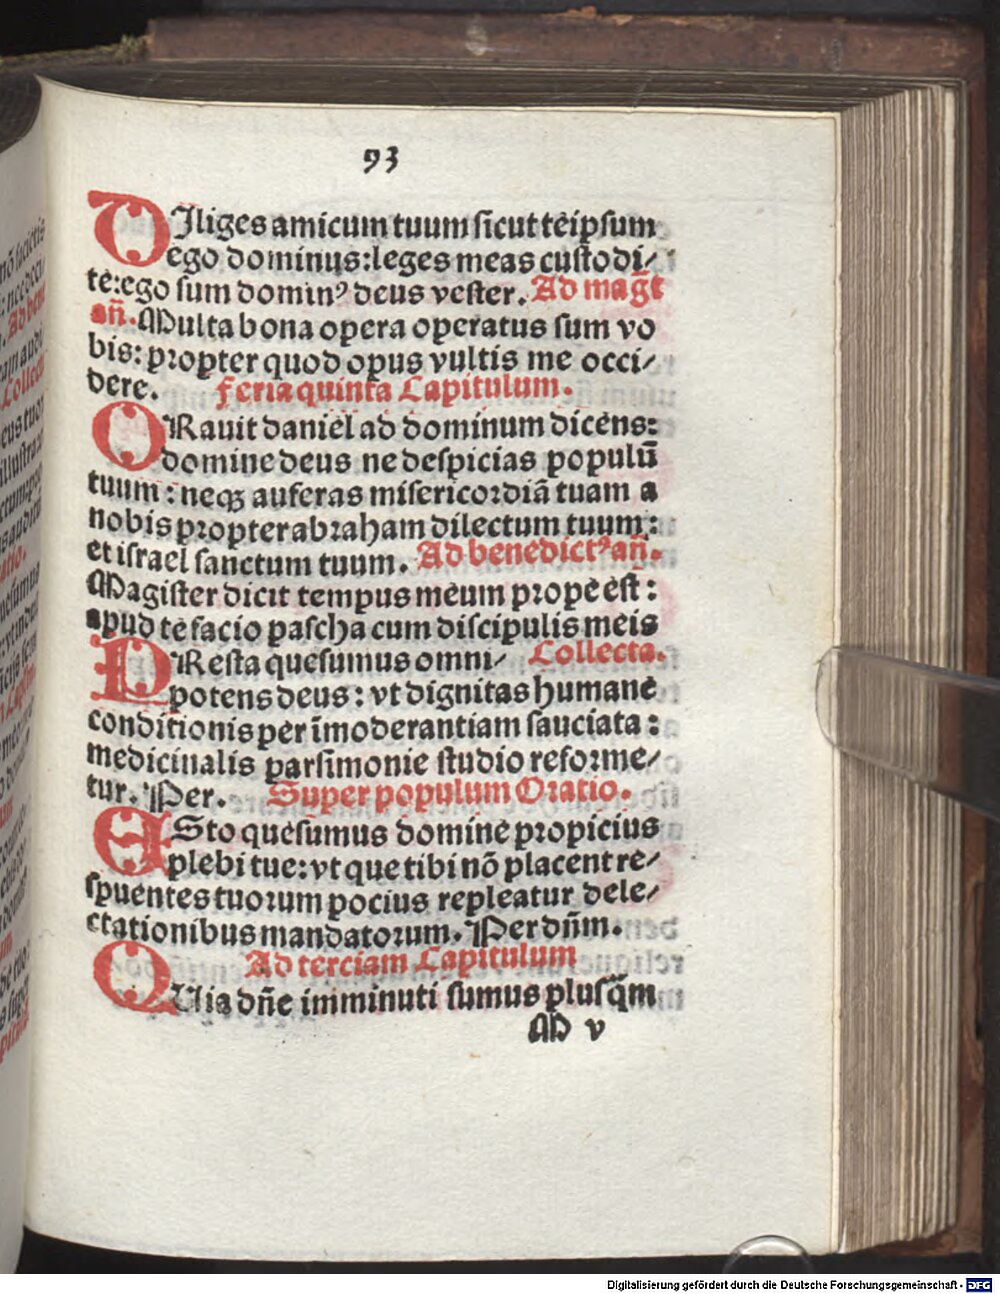 93
DJliges amicum tuum sicut teipsum
ego dominus:leges meas custodi/
te:ego sum dominꝰ deus vester. Ad magt̄
an̄. Multa bona opera operatus sum vo
bis: propter quod opus vultis me occi/
dere. Feria quinta Capitulum.
ORauit daniel ad dominum dicens:
domine deus ne despicias populū
tuum : neqꝫ auferas misericordiā tuam a
nobis propter abraham dilectum tuum:
et israel sanctum tuum. Ad benedictꝰ an̄.
Magister dicit tempus meum prope est:
apud te facio pascha cum discipulis meis
PResta quesumus omni/ Collecta.
potens deus: vt dignitas humane
conditionis per īmoderantiam sauciata:
medicinalis parsimonie studio reforme/
tur. Per. Super populum Oratio.
ESto quesumus domine propicius
plebi tue: vt que tibi nō placent re/
spuentes tuorum pocius repleatur dele/
ctationibus mandatorum. Per dn̄m.
Ad terciam Capitulum
QUia dn̄e imminuti sumus plusq̄m
M v
Digitalisierung gefördert durch die Deutsche Forschungsgemeinschaft - DFG